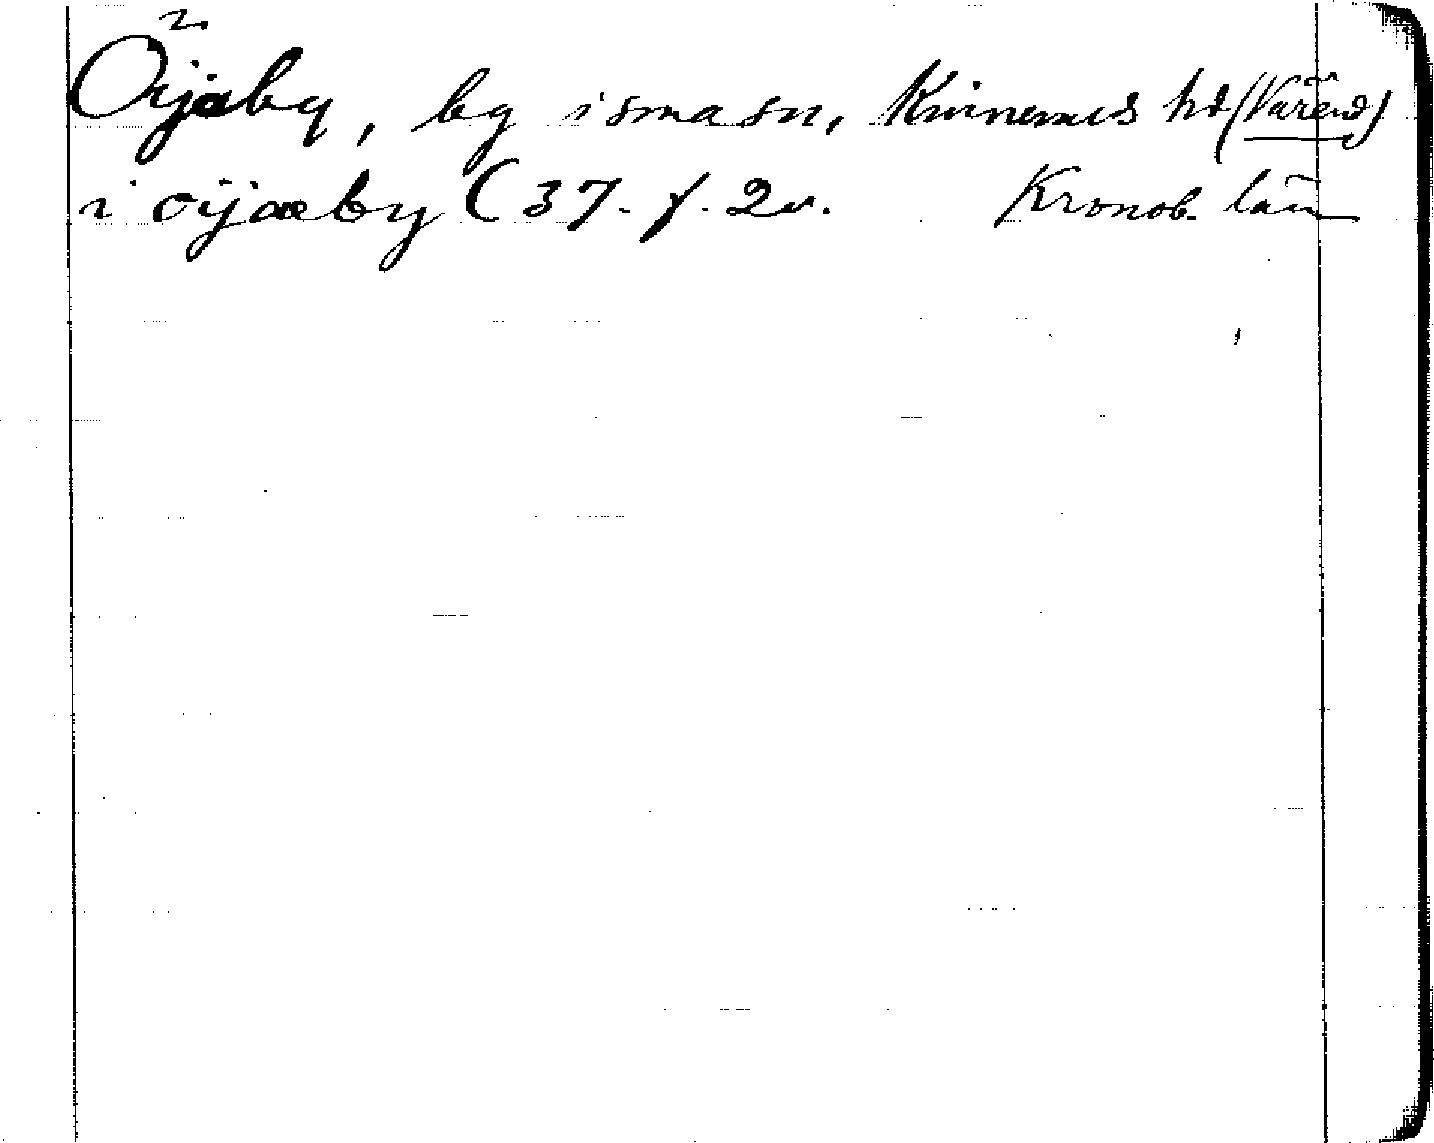 Öijaby, by i smasn, Kinnevals hd (Värend)
i öijæby C 37. f. 2v. Kronob. län